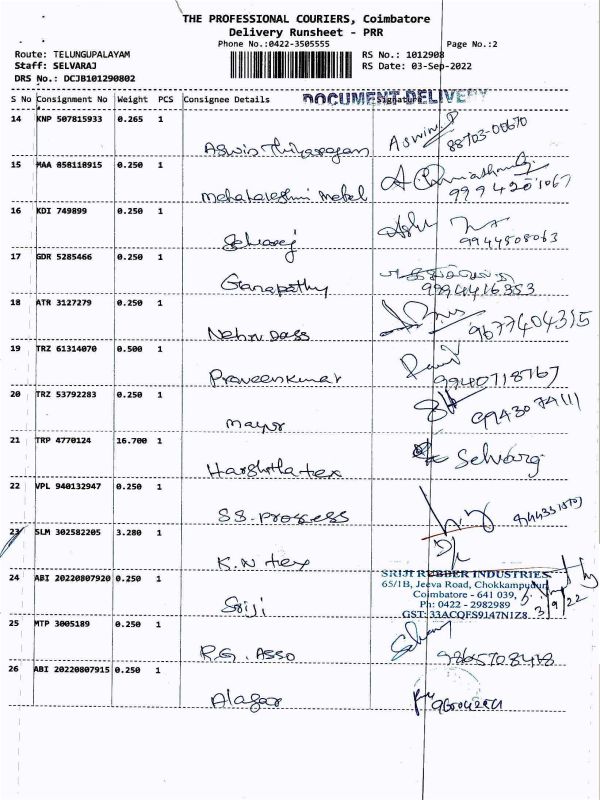 THE PROFESSIONAL COURIERS, Coimbatore
Delivery Runsheet - PRR
Phone No.:0422-3505555
Page No.:2
Route: TELUNGUPALAYAM
RS No.: 1012908
Staff: SELVARAJ
RS Date: 03-Sep-2022
DRS No.: DCJB101290802
S No Consignment No Weight PCS Consignee Details Signature
DOCUMENT DELIVERY
14 KNP 507815933 0.265 1
Aswin Aswin 88703-00670
15 MAA 858118915 0.250 1
Mahalakshmi Metal
16 KDI 749899 0.250 1
Selvaraj 9944508063
17 GDR 5285466 0.250 1
Ganapathy 9994416353
18 ATR 3127279 0.250 1
Nehru Dass 9677404315
19 TRZ 61314070 0.500 1
Praveenkumar 9940718767
20 TRZ 53792283 0.250 1
mayur
21 TRP 4770124 16.700 1
Harshitha tex Selvaraj
22 VPL 940132947 0.250 1
SS. Process
23 SLM 302582205 3.280 1
K.N tex
24 ABI 20220807920 0.250 1
Sriji
SRIJI RUBBER INDUSTRIES
65/1B, Jeeva Road, Chokkampudur,
Coimbatore - 641 039,
Ph: 0422 - 2982989
GST: 33ACQFS9147N1Z8
3/9/22
25 MTP 3005189 0.250 1
R.G. Asso
26 ABI 20220807915 0.250 1
Alagar